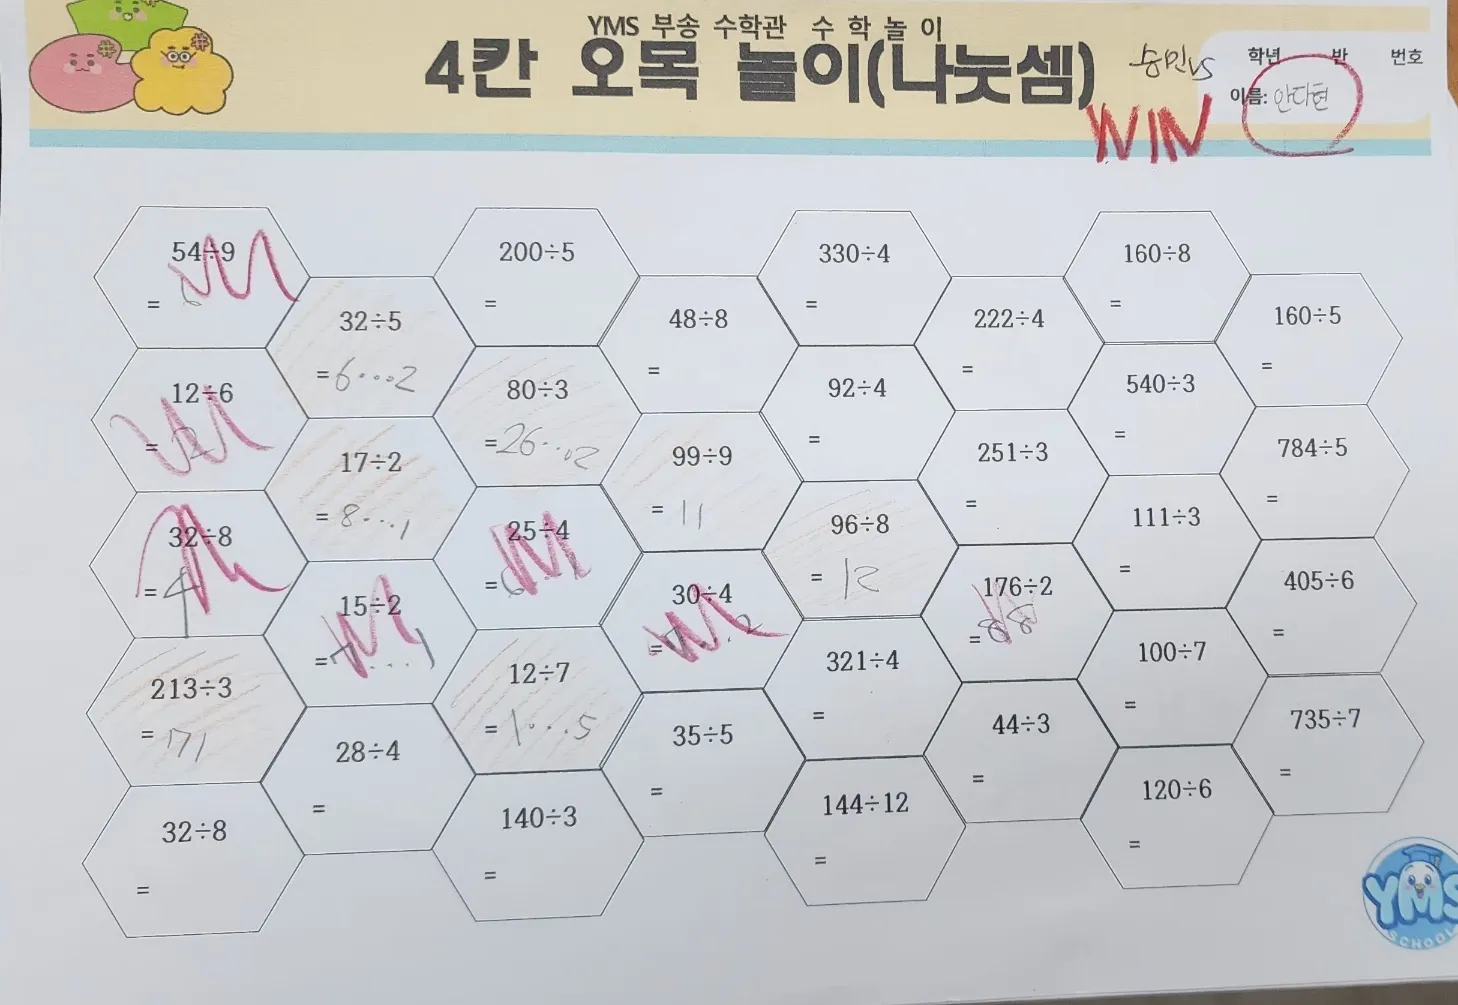 YMS 부송 수학관 수 학 놀 이
4칸 오목 놀이(나눗셈)
승민vs
학년 반 번호
이름: 안다현
WIN
54÷9
= 6
200÷5
=
330÷4
=
160÷8
=
32÷5
=6...2
48÷8
=
222÷4
=
160÷5
=
12÷6
= 2
80÷3
=26...2
92÷4
=
540÷3
=
17÷2
= 8...1
99÷9
= 11
251÷3
=
784÷5
=
32÷8
=4
25÷4
=6
96÷8
= 12
111÷3
=
15÷2
=7...1
30÷4
=7..2
176÷2
=88
405÷6
=
213÷3
= 171
12÷7
= 1...5
321÷4
=
100÷7
=
28÷4
=
35÷5
=
44÷3
=
735÷7
=
32÷8
=
140÷3
=
144÷12
=
120÷6
=
YMS
SCHOOL